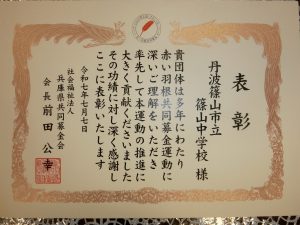 表彰
丹波篠山市立
篠山中学校 様
貴団体は多年にわたり
赤い羽根共同募金運動に
深いご理解をいただき
率先して本運動の推進に
大きく貢献くださいました
その功績に対し深く感謝し
ここに表彰いたします
令和七年七月七日
社会福祉法人
兵庫県共同募金会
会長 前田 公幸